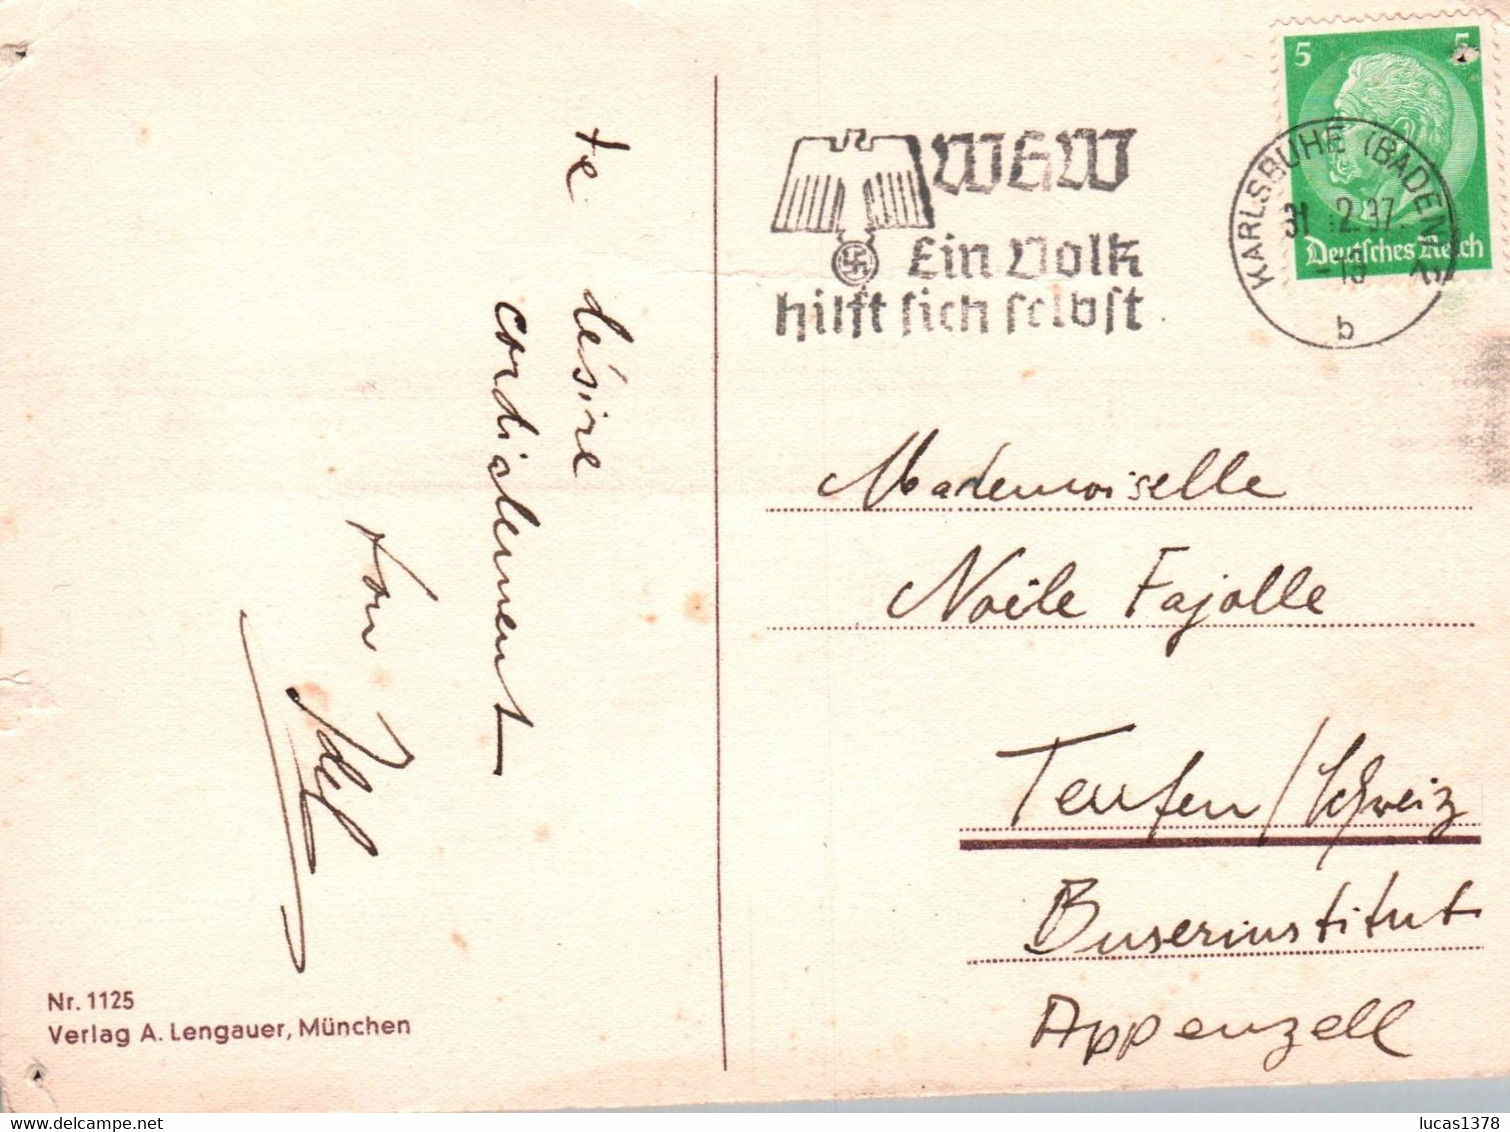 te désire
cordialement
ton
Nr. 1125
Verlag A. Lengauer, München
WHW
Ein Volk
hilft sich selbst
KARLSRUHE (BADEN) 2
31.12.37.
b
5 5
Deutsches Reich
Mademoiselle
Noële Fajolle
Teufen/Schweiz
Buserinstitut
Appenzell
lucas1378